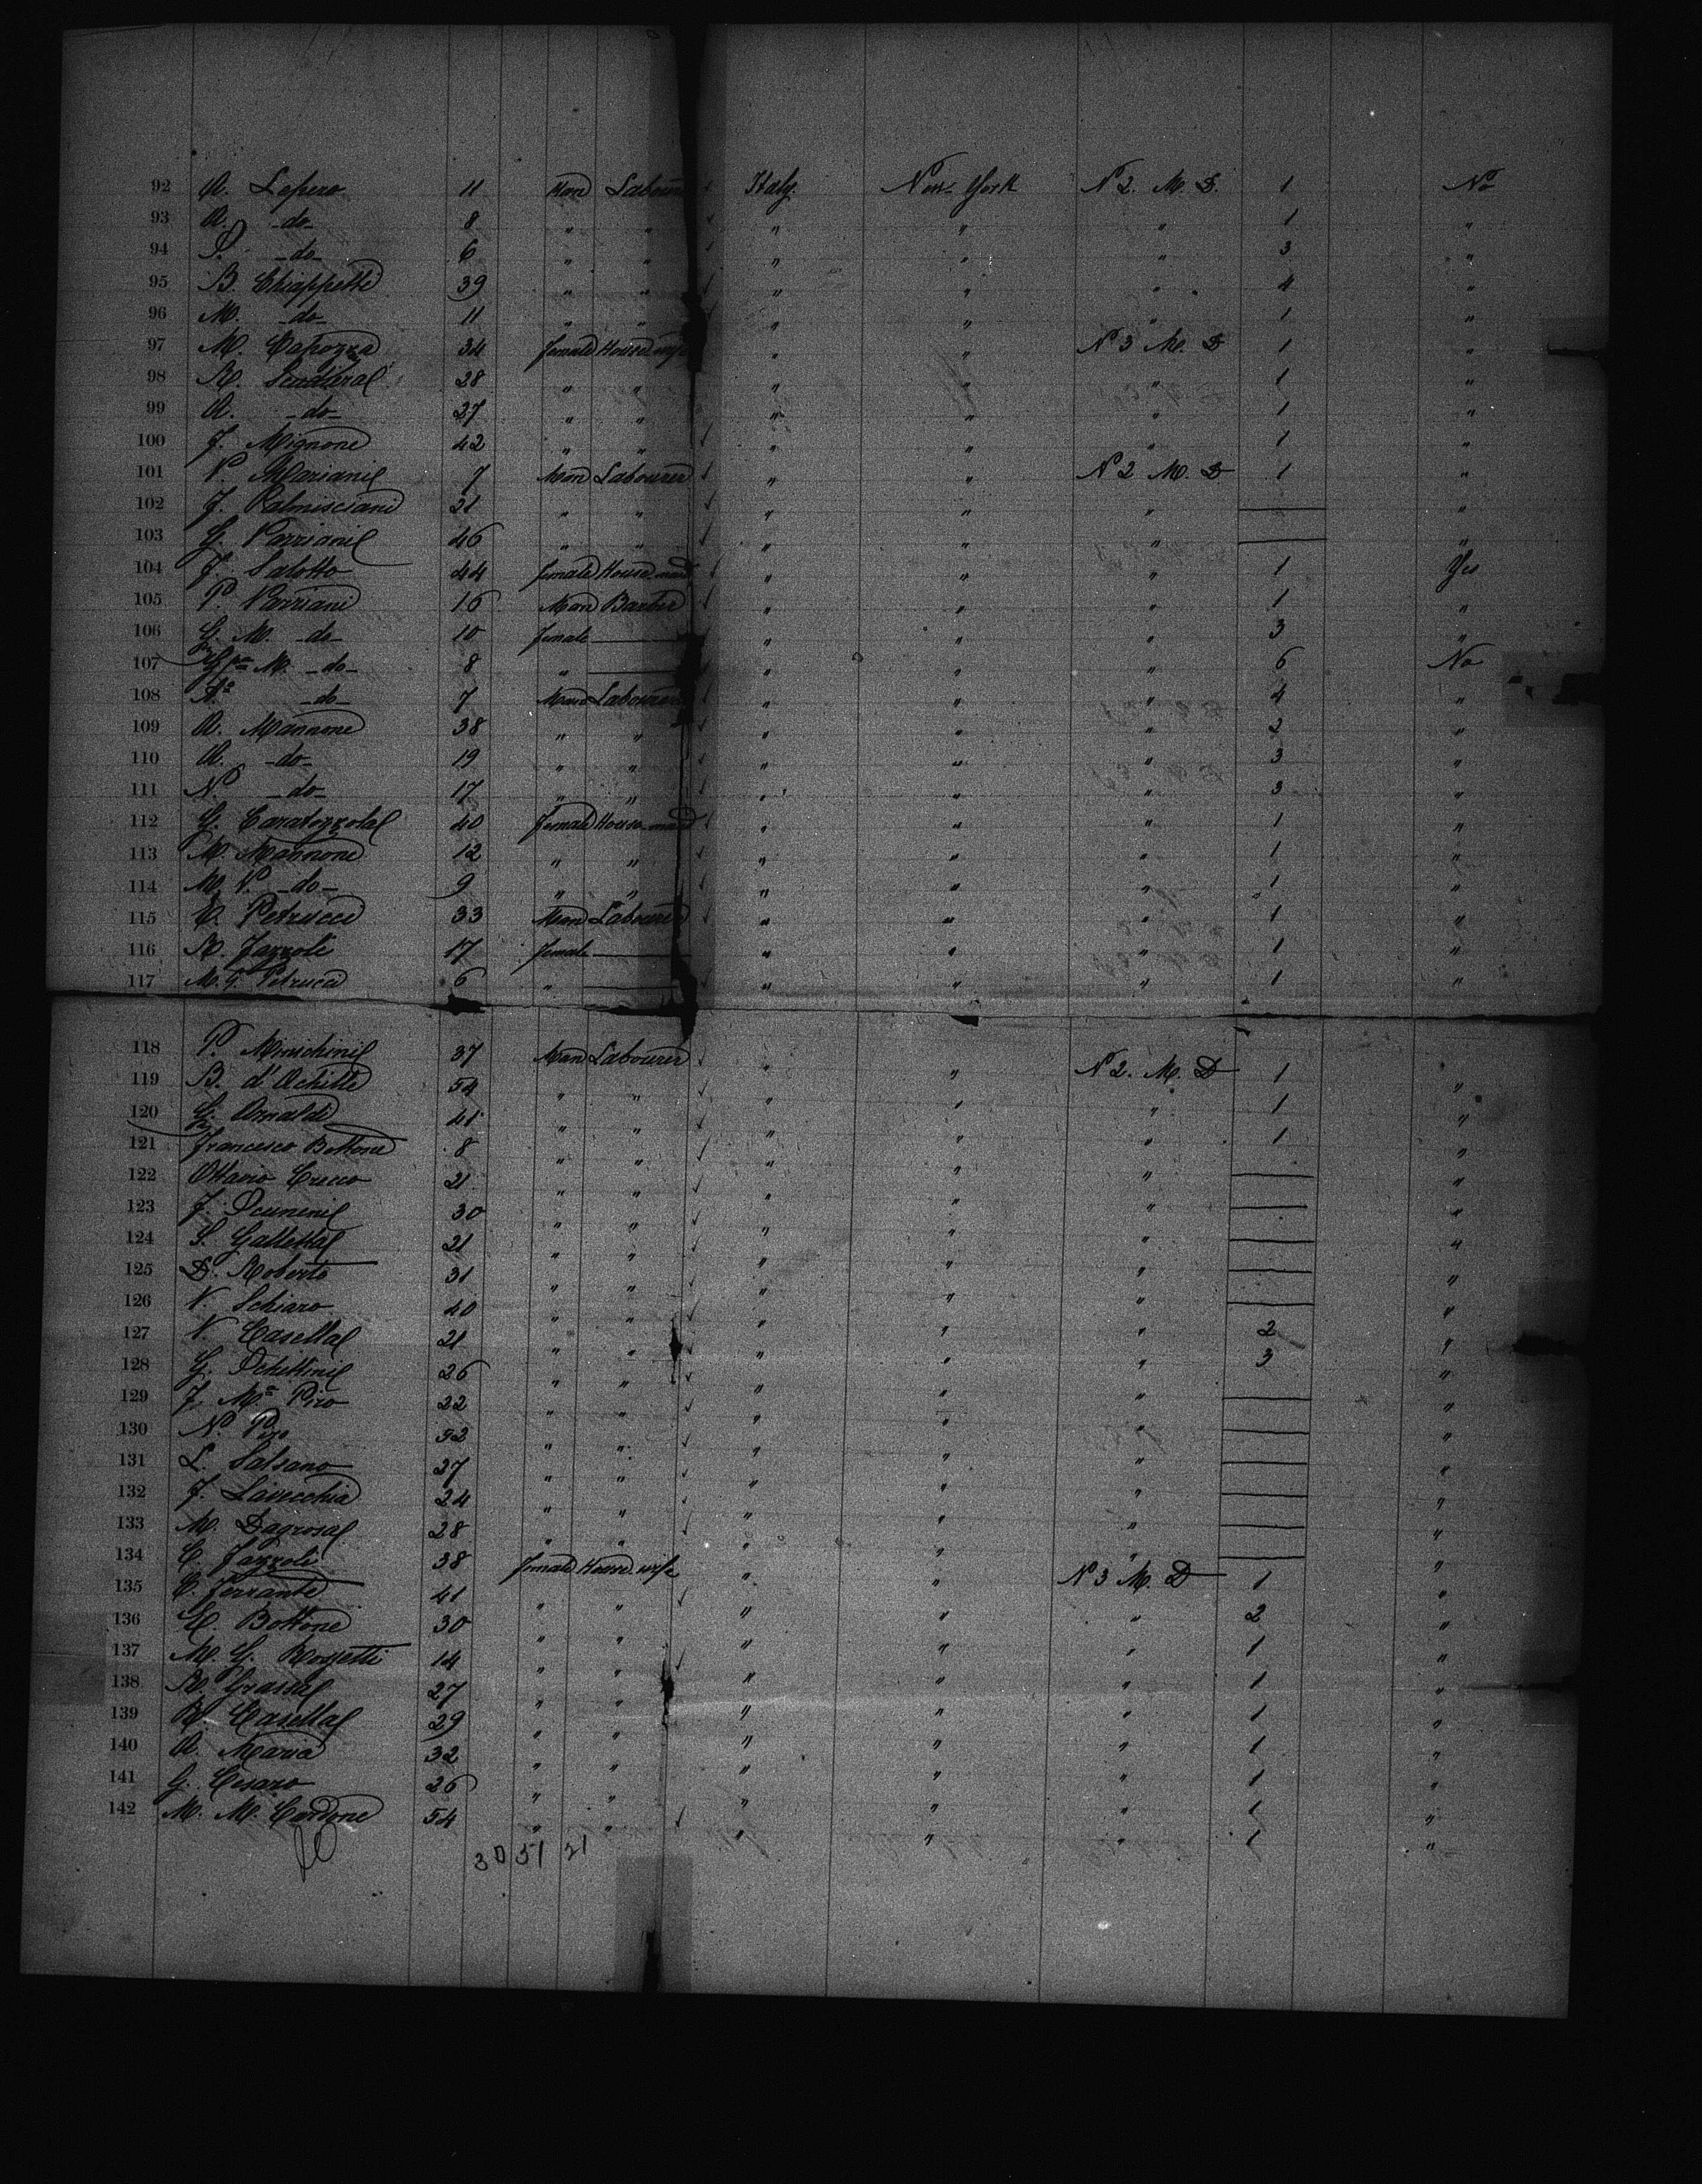 92 A. Lepero 11 Man Labourer Italy. New-York N 2. M. D. 1 No
93 A. -do- 8 " " " " " 1 "
94 P. -do- 6 " " " " " 3 "
95 B. Chiappetti 39 " " " " " 4 "
96 M. -do- 11 " " " " " 1 "
97 M. Capozza 34 female House-wife " " N 3 M. D 1 "
98 R. 28 " " " " " 1 "
99 A. -do- 27 " " " " " 1 "
100 F. Mignone 42 " " " " " 1 "
101 V. Mariani 7 Man Labourer " " N 2 M. D 1 "
102 F. Palmisciano 21 " " " " " — "
103 G. 46 " " " " " — "
104 F. Salotto 44 female House-maid " " " 1 Yes
105 P. 16 Man Barber " " " 1 "
106 G. M. -do- 10 female — " " " 3 "
107 M. -do- 8 " — " " " 6 No
108 -do- 7 Man Labourer " " " 4 "
109 A. Mannone 38 " " " " " 2 "
110 A. -do- 19 " " " " " 3 "
111 N. -do- 17 " " " " " 3 "
112 G. Caratozzola 40 female House-maid " " " 1 "
113 M. Mannone 12 " " " " " 1 "
114 M. V. -do- 9 " " " " " 1 "
115 C. Petrucci 33 Man Labourer " " " 1 "
116 R. Fazzoli 17 female — " " " 1 "
117 M. G. Petrucci 6 " — " " " 1 "
118 P. 37 Man Labourer " " N 2. M. D 1 "
119 B. d'Achille 54 " " " " " 1 "
120 G. Arnaldi 41 " " " " " 1 "
121 Francesco Bottone 8 " " " " " — "
122 Ottavio Crecco 21 " " " " " — "
123 F. 30 " " " " " — "
124 S. Galletta 21 " " " " " — "
125 D. Roberto 31 " " " " " — "
126 V. Schiavo 40 " " " " " 2 "
127 V. Casella 21 " " " " " 3 "
128 G. 26 " " " " " — "
129 F. Mª Piro 22 " " " " " — "
130 N. Piro 52 " " " " " — "
131 L. Salsano 27 " " " " " — "
132 F. Lavecchia 24 " " " " " — "
133 M. Dagrosa 28 " " " " " — "
134 C. Fazzoli 38 female House-wife " " N 3 M. D 1 "
135 C. Ferrante 41 " " " " " 2 "
136 C. Bottone 30 " " " " " 1 "
137 M. G. Rossetti 14 " " " " " 1 "
138 R. Grassa 27 " " " " " 1 "
139 R. Casella 29 " " " " " 1 "
140 A. Maria 32 " " " " " 1 "
141 G. Cesaro 26 " " " " " 1 "
142 M. M. Cardone 54 " " " " " 1 "
30 51 21